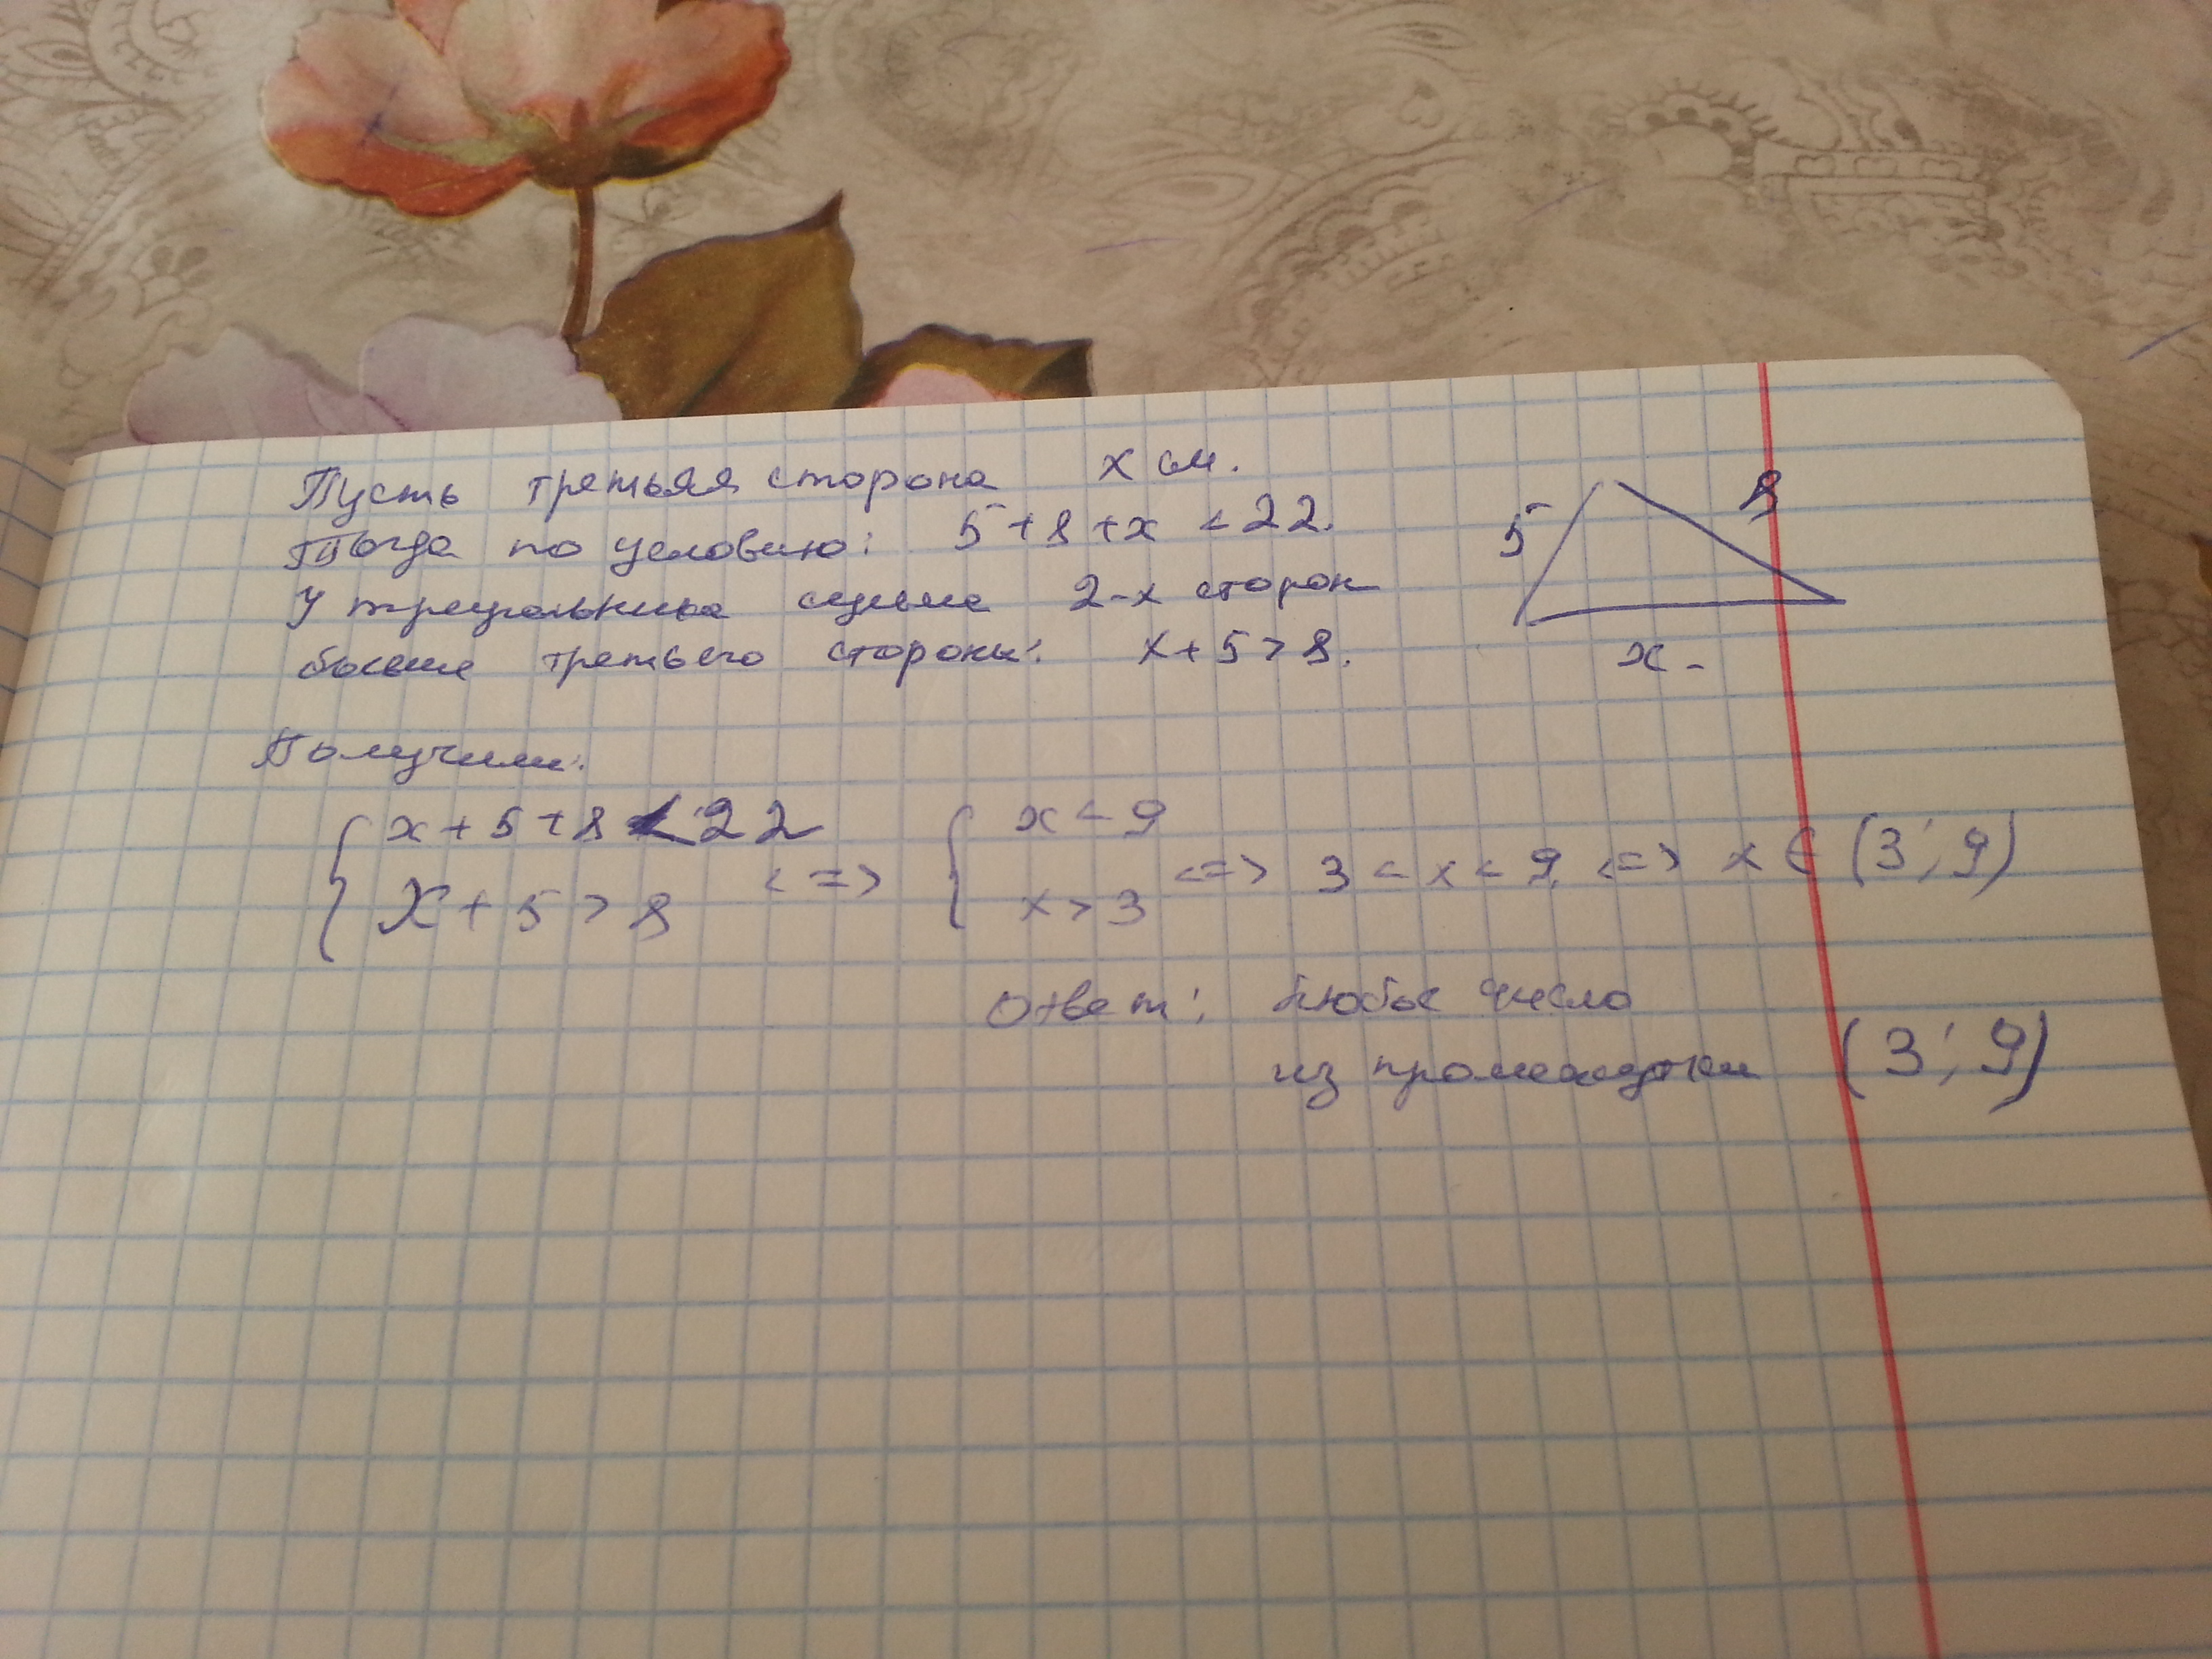 Пусть третьяя сторона x см.
Тогда по условию: 5+8+x <22.
У треугольника сумма 2-х сторон
больше третьего стороны: x+5>8.
5
8
x -
Получим:
{ x+5+8<22
x+5>8
<=>
{ x<9
x>3
<=> 3<x<9 <=> x ∈ (3; 9)
Ответ: Любое число
из промежутки (3; 9)